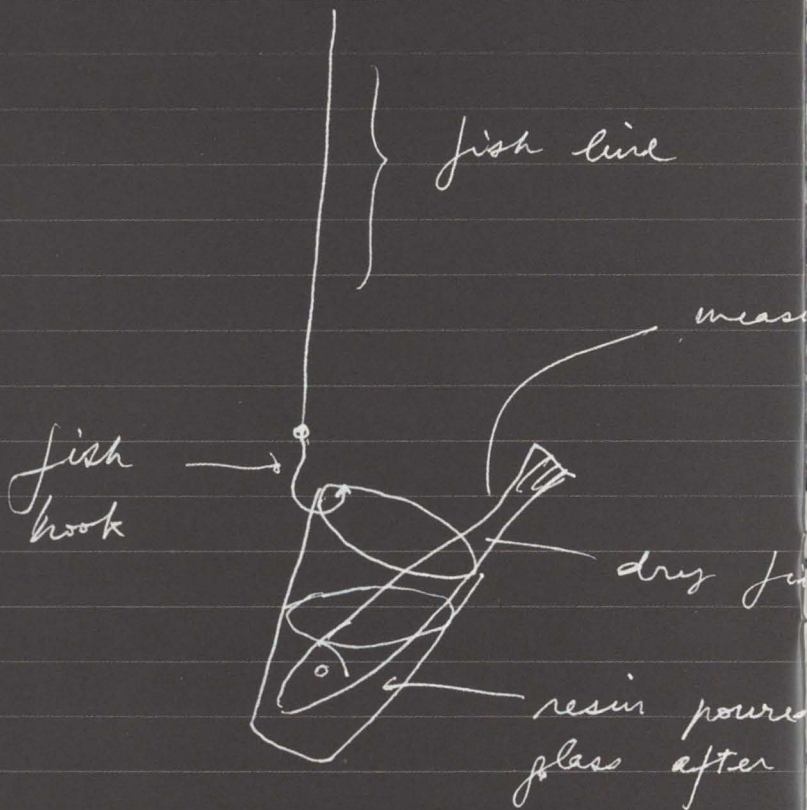 fish line
meas
fish
hook
dry fi
resin poured
glass after